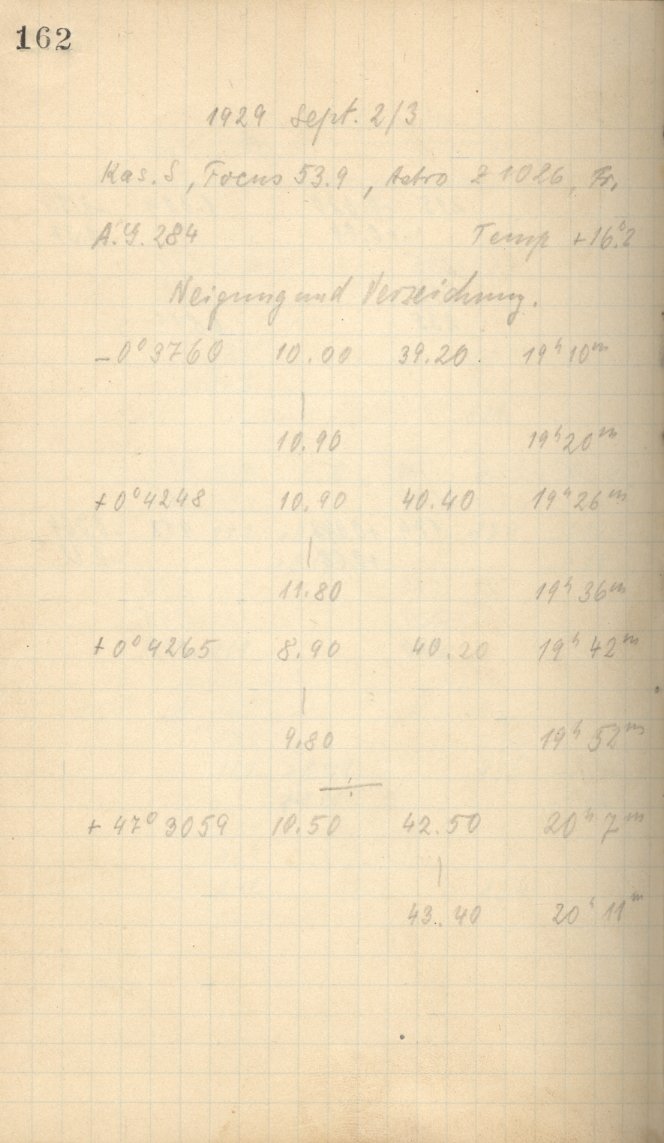 162
1929 Sept. 2/3
Kas. S, Focus 53.9, Astro Z 1026, Fr,
A.G. 284 Temp +16.°2
Neigung und Verzeichnung.
-0°3760 10.00 39.20 19h 10m
|
10.90 19h 20m
+0°4248 10.90 40.40 19h 26m
|
11.80 19h 36m
+0°4265 8.90 40.20 19h 42m
|
9.80 19h 52m
÷
+47°3059 10.50 42.50 20h 7m
|
43.40 20h 11m